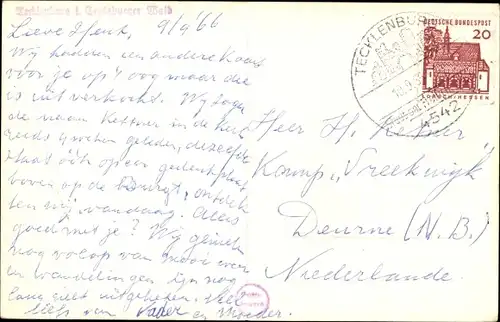 Tecklenburg i. Teutoburger Wald
Lieve Henk, 9/9 '66
Wij hadden een andere kaart
voor je op 't oog maar die
is uitverkocht. Wij
de naam Kettner in de
reeds 4 weken geleden, dezelfde
staat ook op een gedenkplaat
boven op de Burgt, ontdek-
ten wij vandaag. Alles
goed met je? Wij genieten
nog volop van mooi weer
en wandelingen zijn nog
lang niet uitgekeken. Veel
liefs van Vader en Moeder.
TECKLENBURG
4542
DEUTSCHE BUNDESPOST
20
LORSCH/HESSEN
Heer H.
Kamp „Vreekwijk
Deurne (N.B.)
Niederlande.